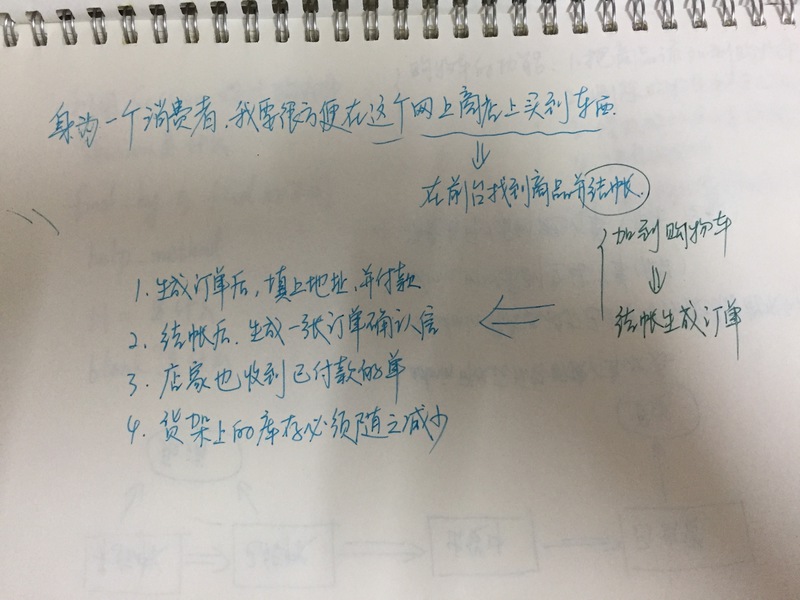 身为一个消费者,我要很方便在这个网上商店上买到东西.
在前台找到商品并结帐.
加到购物车
结帐生成订单
1. 生成订单后,填上地址,并付款
2. 结帐后.生成一张订单确认信
3. 店家也收到已付款的单
4. 货架上的库存必须随之减少